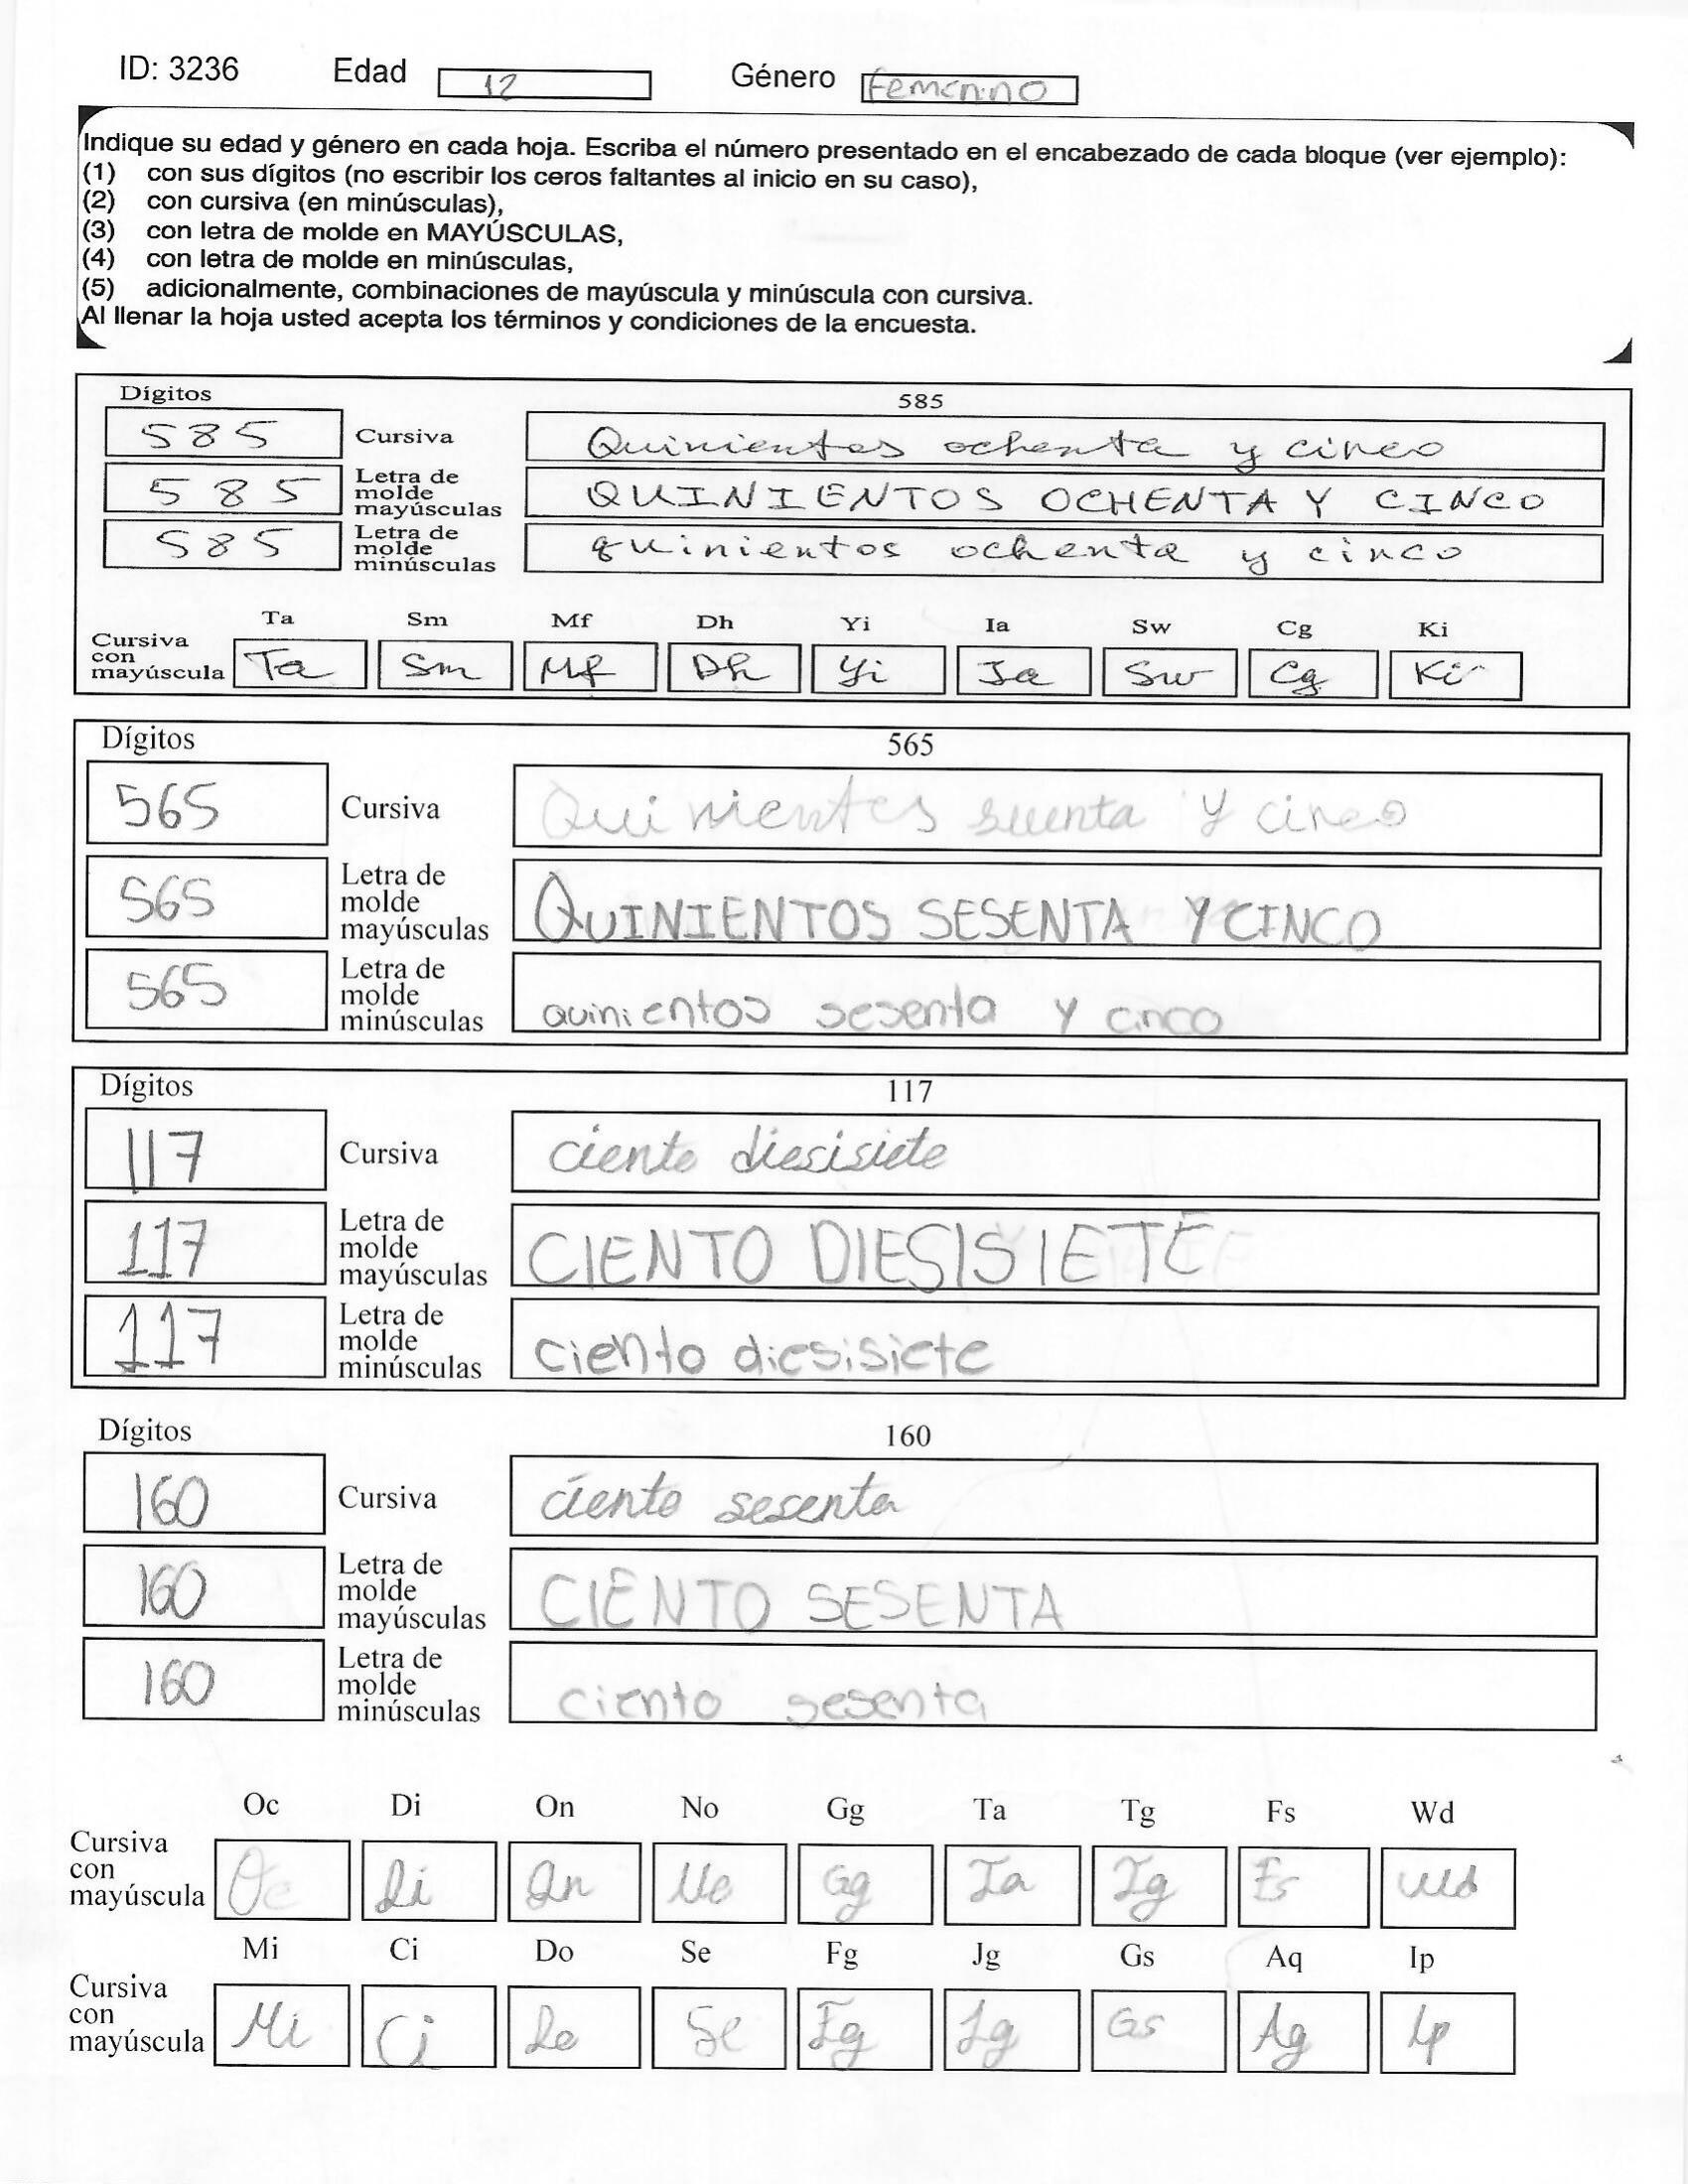 ID: 3236 Edad 12 Género femenino
Indique su edad y género en cada hoja. Escriba el número presentado en el encabezado de cada bloque (ver ejemplo):
(1) con sus dígitos (no escribir los ceros faltantes al inicio en su caso),
(2) con cursiva (en minúsculas),
(3) con letra de molde en MAYÚSCULAS,
(4) con letra de molde en minúsculas,
(5) adicionalmente, combinaciones de mayúscula y minúscula con cursiva.
Al llenar la hoja usted acepta los términos y condiciones de la encuesta.
Dígitos 585
585 Cursiva Quinientos ochenta y cinco
585 Letra de molde mayúsculas QUINIENTOS OCHENTA Y CINCO
585 Letra de molde minúsculas quinientos ochenta y cinco
Ta Sm Mf Dh Yi Ia Sw Cg Ki
Cursiva con mayúscula Ta Sm Mf Dh Yi Ia Sw Cg Ki
Dígitos 565
565 Cursiva Quinientos y cinco
565 Letra de molde mayúsculas QUINIENTOS SESENTA Y CINCO
565 Letra de molde minúsculas quinientos sesenta y cinco
Dígitos 117
117 Cursiva ciento diesisiete
117 Letra de molde mayúsculas CIENTO DIESISIETE
117 Letra de molde minúsculas ciento diesisiete
Dígitos 160
160 Cursiva ciento sesenta
160 Letra de molde mayúsculas CIENTO SESENTA
160 Letra de molde minúsculas ciento sesenta
Oc Di On No Gg Ta Tg Fs Wd
Cursiva con mayúscula Oc Di On No Gg Ta Tg Fs Wd
Mi Ci Do Se Fg Jg Gs Aq Ip
Cursiva con mayúscula Mi Ci Do Se Fg Jg Gs Ag Ip